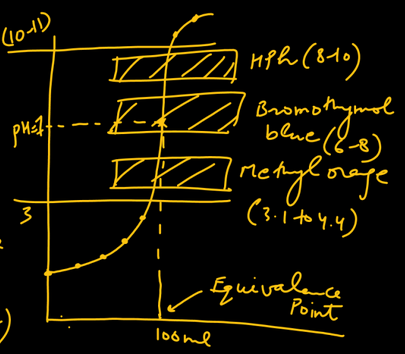 (10-11)
HPh (8-10)
Bromothymol
blue (6-8)
pH=7
Methyl orange
(3.1 to 4.4)
3
Equivalence
Point
100ml